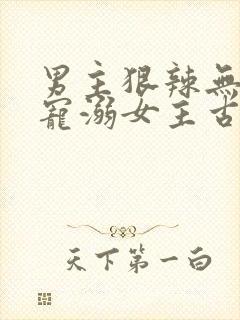 男主狠辣無
寵溺女主古
天下第一白